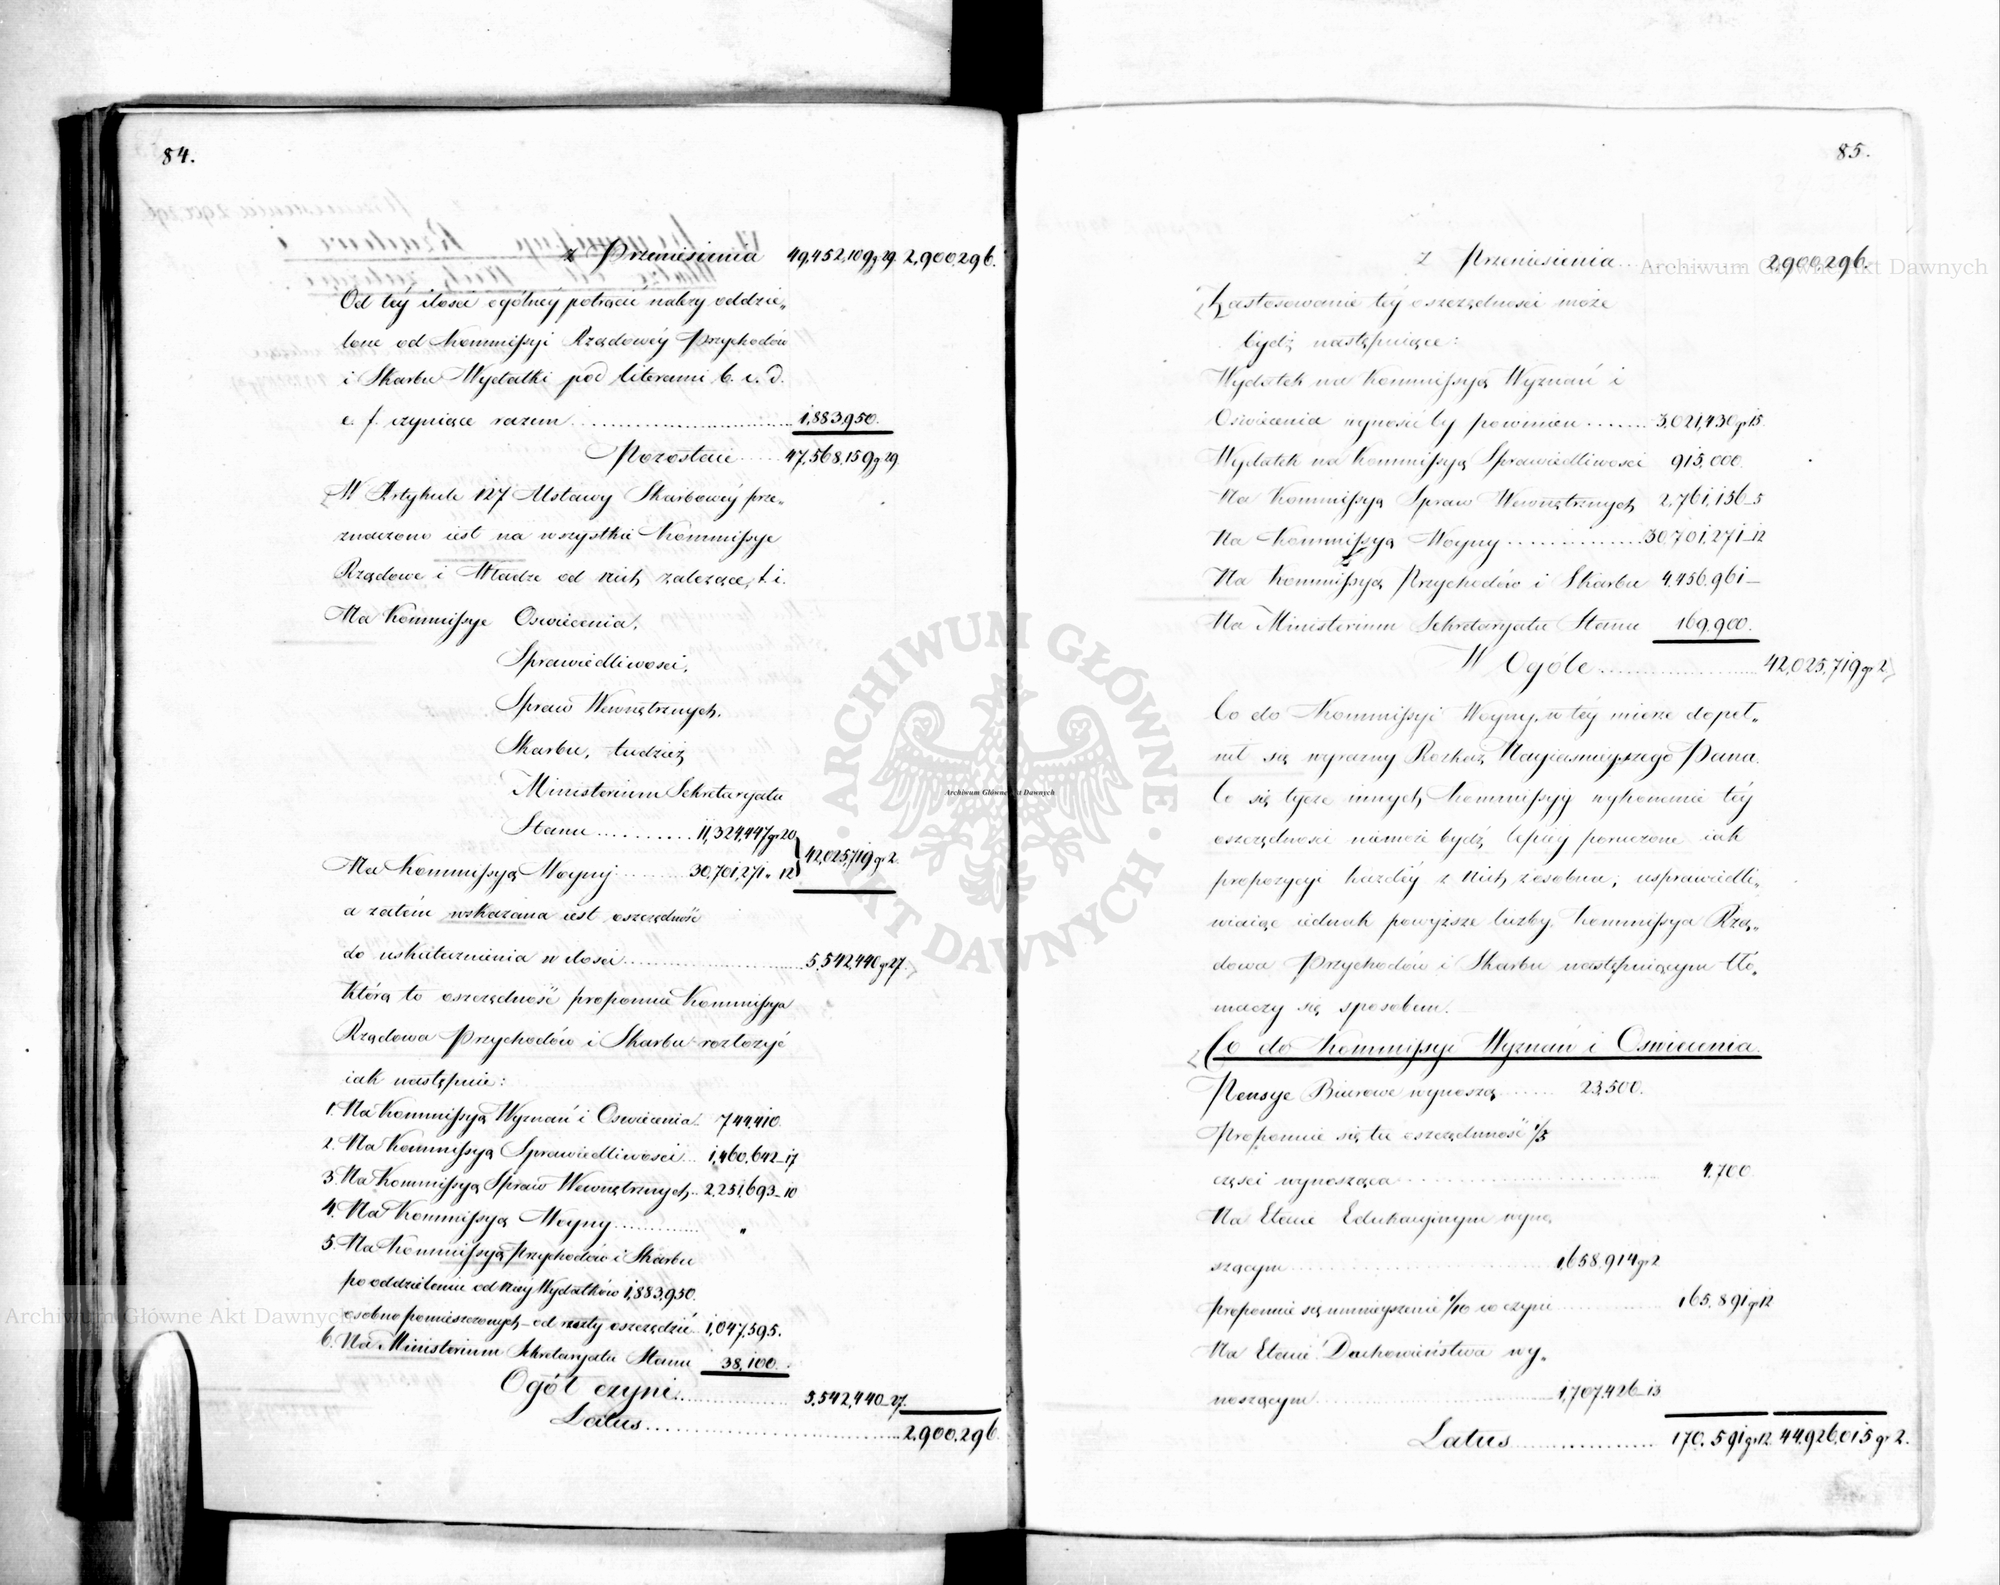 84.
z Przeniesienia 49,452,109 g. 29. 2,900,296.
Od tey ilości ogólney potrącić należy oddzie„
lone od Kommissyi Rządowey Przychodów
i Skarbu Wydatki pod literami b. c. d.
e. f. czyniące razem 1,883,950.
Pozostaie 47,568,159 g. 29.
W Artykule 127 Ustawy Skarbowey prze„
znaczono iest na wszystkie Kommissye
Rządowe i Władze od nich zależące, t. i.
Na Kommissye Oswiecenia,
Sprawiedliwosci,
Spraw Wewnętrznych,
Skarbu, tudzież
Ministerium Sekretaryatu
Stanu 11,324,447 gr 20
42,025,719 gr 2.
Na Kommissyą Woyny 30,701,271 „ 12
a zatem wskazana iest oszczędność
do uskutecznienia w ilosci 5,542,440 gr 27.
Którą to oszczędność proponuie Kommissya
Rządowa Przychodów i Skarbu rozłożyć
iak następuie:
1. Na Kommissyą Wyznań i Oswiecenia 744,410.
2. Na Kommissyą Sprawiedliwosci 1,460,642_17
3. Na Kommissyą Spraw Wewnętrznych 2,251,693_10
4. Na Kommissyą Woyny „
5. Na Kommissyą Przychodów i Skarbu
po oddzieleniu od niéy Wydatków 1,883,950.
osobno pomieszczonych_ od reszty oszczędzić 1,047,595.
6. Na Ministerium Sekretaryatu Stanu 38,100.
Ogół czyni 5,542,440_27.
Latus 2,900,296.
85.
z Przeniesienia 2,900,296.
Zastosowanie téy oszczędnosci może
bydź następuiące:
Wydatek na Kommissyą Wyznań i
Oświecenia wynosić by powinien 3,021,430 gr 15.
Wydatek na Kommissyą Sprawiedliwosci 915,000.
Na Kommissyą Spraw Wewnętrznych 2,761,156_5
Na Kommissyą Woyny 30,701,271_12
Na Kommissyą Przychodów i Skarbu 4,456,961_
Na Ministerium Sekretaryatu Stanu 169,900.
W Ogóle 42,025,719 gr 2.
Co do Kommissyi Woyny, w téy mierze dopeł„
nił się wyrazny Rozkaz Nayiasnieyszego Pana.
Co się tycze innych Kommissyy wykonanie téy
oszczędnosci niemoże bydź lepiéy poruczone iak
propozycyi każdéy z nich zosobna, usprawiedli„
wiaiąc iednak powyższe liczby, Kommissya Rzą„
dowa Przychodów i Skarbu następuiącym tło„
maczy się sposobem.
Co do Kommissyi Wyznań i Oswiecenia.
Pensye Biurowe wynoszą 23,500.
Proponuie się tu oszczędność 1/5
części wynosząca 4,700
Na Etacie Edukacyinym wyno„
szącym 1,658,914 gr 2
proponuie się umnieyszenie 1/10 co czyni 165,891 gr 12
Na Etacie Duchowieństwa wy„
noszącym 1,707,426_13
Latus 170,591 gr 12. 44,926,015 gr 2.
Archiwum Główne Akt Dawnych
Archiwum Główne Akt Dawnych
Archiwum Główne Akt Dawnych
ARCHIWUM GŁÓWNE AKT DAWNYCH